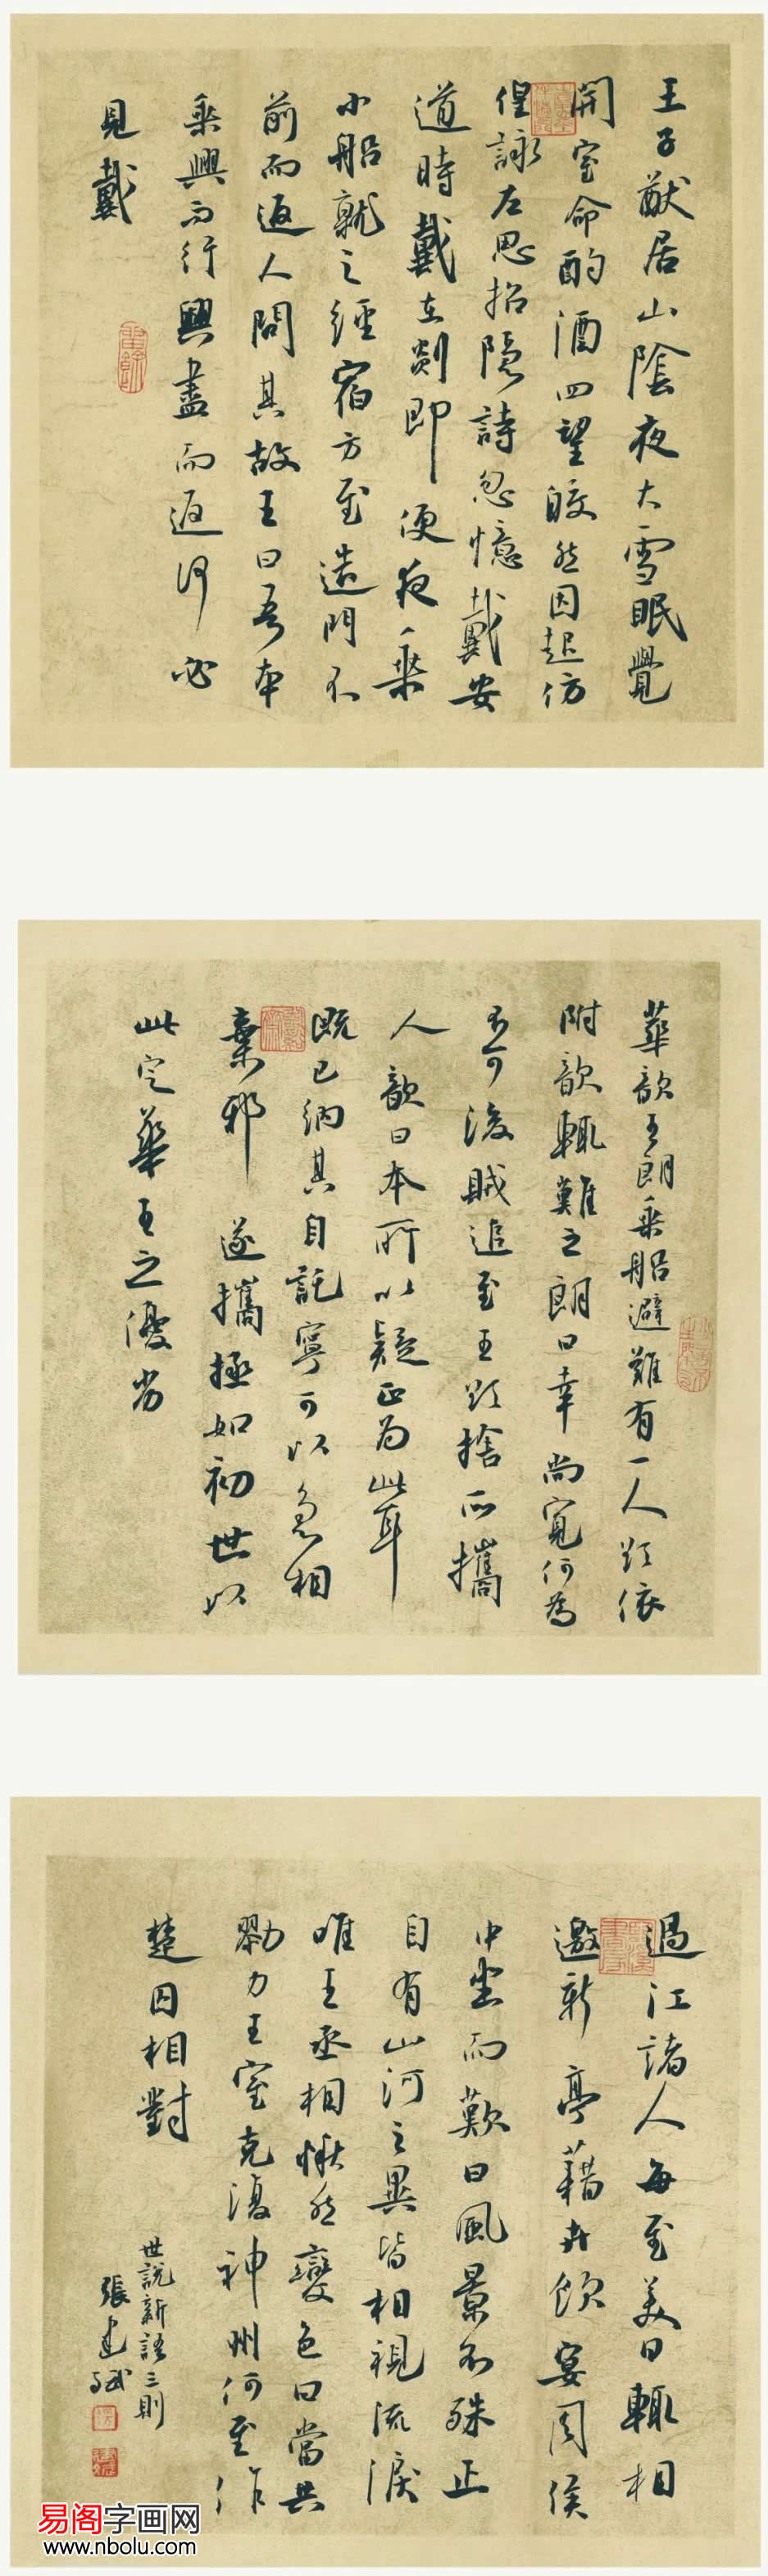 王子猷居山陰夜大雪眠覺
開室命酌酒四望皎然因起仿
偟詠左思招隱詩忽憶戴安
道時戴在剡即便夜乘
小船就之經宿方至造門不
前而返人問其故王曰吾本
乘興而行興盡而返何必
見戴
華歆王朗乘船避難有一人欲依
附歆輒難之朗曰幸尚寬何為
不可後賊追至王欲捨所攜
人歆曰本所以疑正為此耳
既已納其自託寧可以急相
棄邪遂攜拯如初世以
此定華王之優劣
過江諸人每至美日輒相
邀新亭藉卉飲宴周侯
中坐而歎曰風景不殊正
自有山河之異皆相視流淚
唯王丞相愀然變色曰當共
勠力王室克復神州何至作
楚囚相對
世說新語三則
張建
易阁字画网
www.nbolu.com